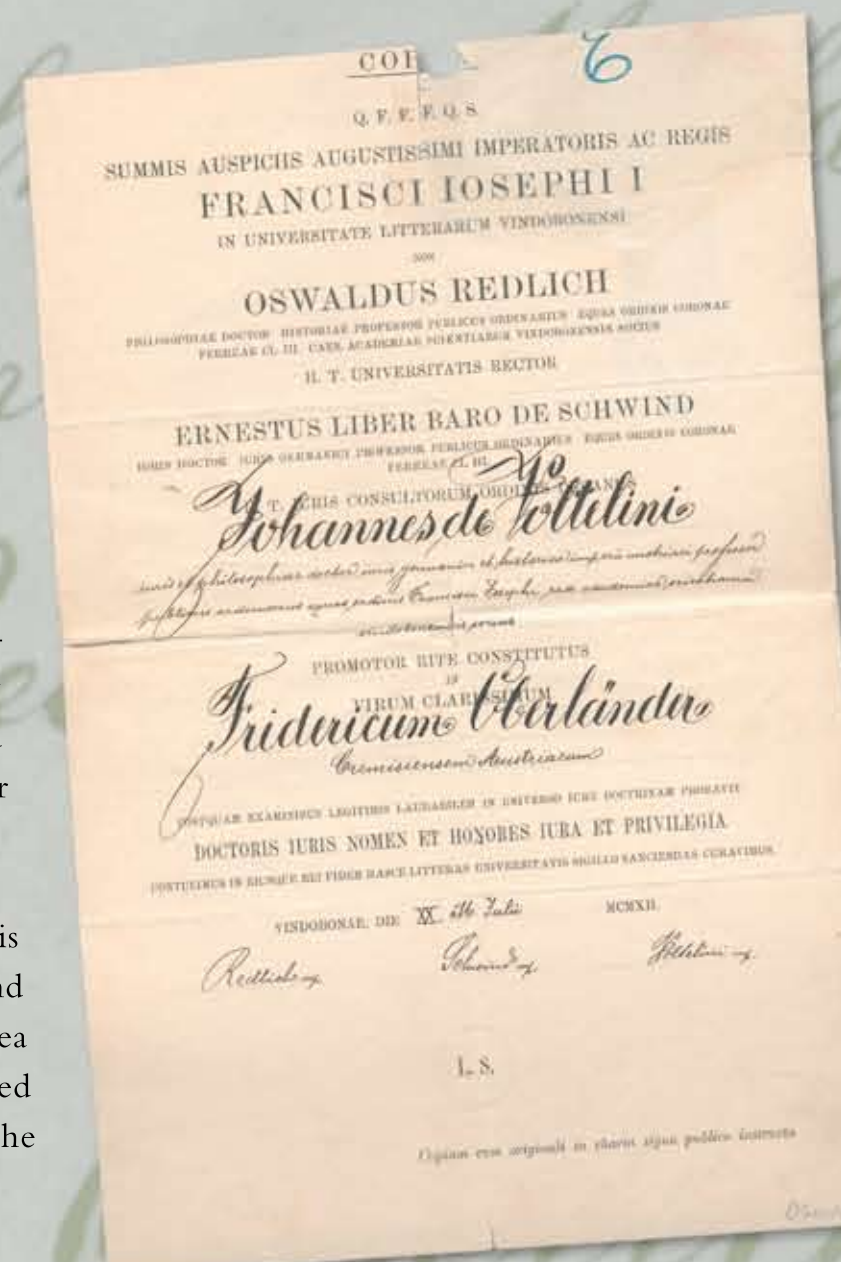 COP
6
Q. F. F. F. Q. S.
SUMMIS AUSPICIIS AUGUSTISSIMI IMPERATORIS AC REGIS
FRANCISCI IOSEPHI I
IN UNIVERSITATE LITTERARUM VINDOBONENSI
NOS
OSWALDUS REDLICH
PHILOSOPHIAE DOCTOR HISTORIAE PROFESSOR PUBLICUS ORDINARIUS EQUES ORDINIS CORONAE
FERREAE CL. III. CAES. ACADEMIAE SCIENTIARUM VINDOBONENSIS SOCIUS
H. T. UNIVERSITATIS RECTOR
ERNESTUS LIBER BARO DE SCHWIND
IURIS DOCTOR IURIS GERMANICI PROFESSOR PUBLICUS ORDINARIUS EQUES ORDINIS CORONAE
FERREAE CL. III.
T. IURIS CONSULTORUM ORDINIS DECANUS
Johannes de Voltelini
iuris et philosophiae doctor iuris germanici et historiae imperii austriaci professor
publicus ordinarius eques ordinis Francisci Josephi
PROMOTOR RITE CONSTITUTUS
IN
VIRUM CLARISSIMUM
Fridericum Oberländer
Cremisiensem Austriacum
POSTQUAM EXAMINIBUS LEGITIMIS LAUDABILEM IN UNIVERSO IURE DOCTRINAM PROBAVIT
DOCTORIS IURIS NOMEN ET HONORES IURA ET PRIVILEGIA
CONTULIMUS IN EIUSQUE REI FIDEM HASCE LITTERAS UNIVERSITATIS SIGILLO SANCIENDAS CURAVIMUS.
VINDOBONAE, DIE XX. Julii MCMXII.
Redlich Schwind Voltelini
L. S.
Copiam cum originali in charta signo publico instructo
r
is
nd
ea
ed
he